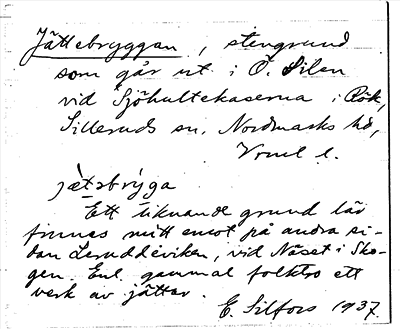 Jättebryggan, stengrund
som går ut i Ö. Silen
vid Sjöhultekaserna i Rök,
Silleruds sn, Nordmarks hd,
Vrml l.
jètǝbrýga
Ett liknande grund lär
finnas mitt emot på andra si-
dan Leruddeviken, vid Näset i Sko-
gen. Enl. gammal folktro ett
verk av jättar.
E. Silfors 1937.